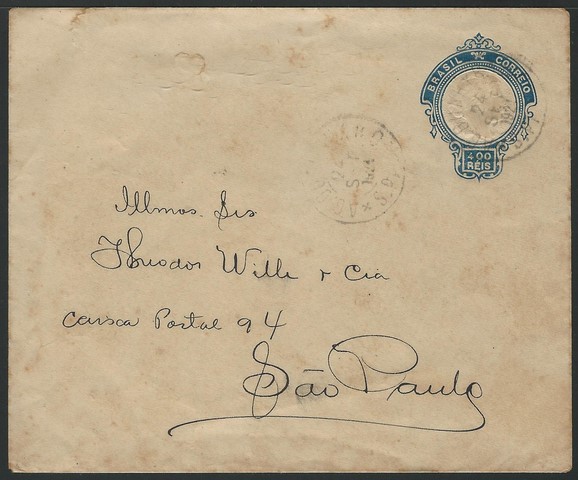 BRASIL CORREIO
400
RÉIS
Illmos. Srs
Theodor Wille & Cia
Caixa Postal 94
São Paulo